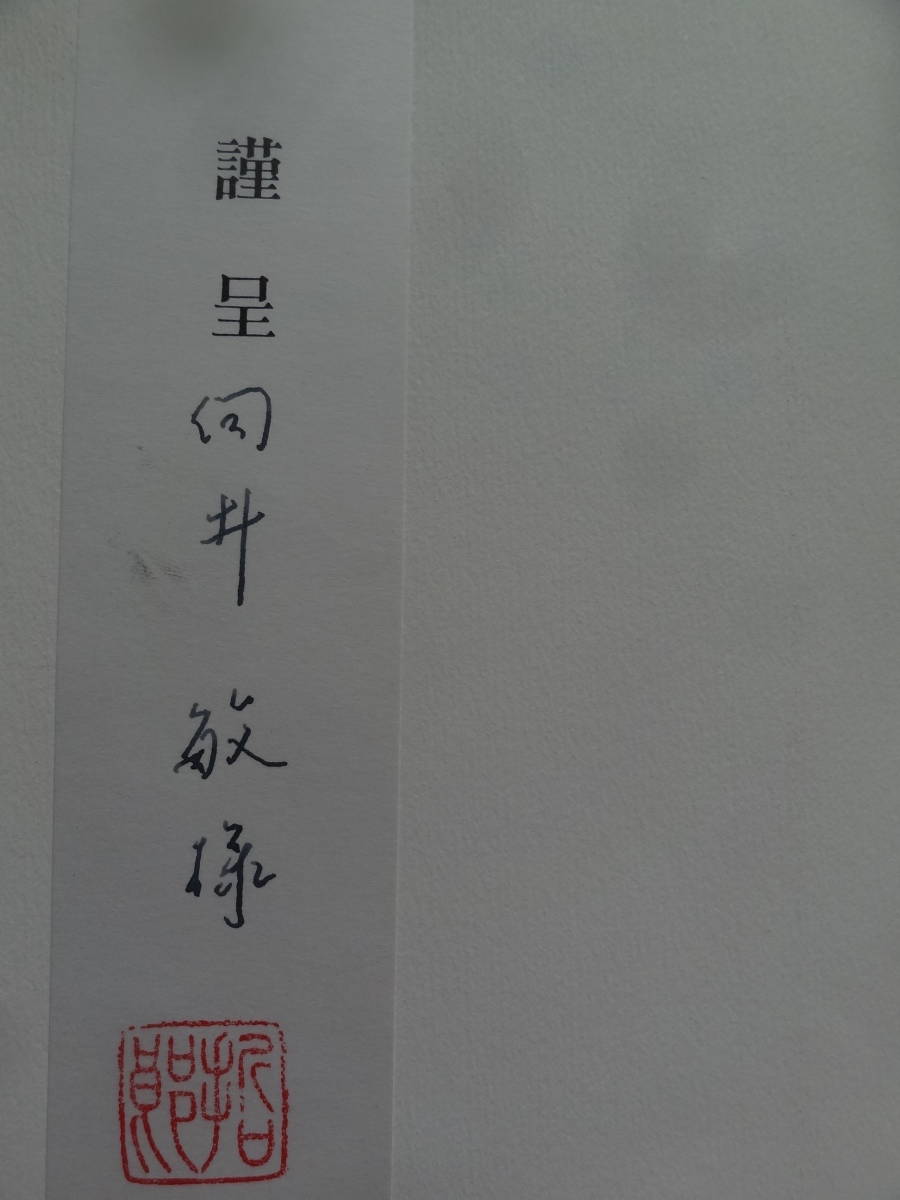 謹呈
向井敏様